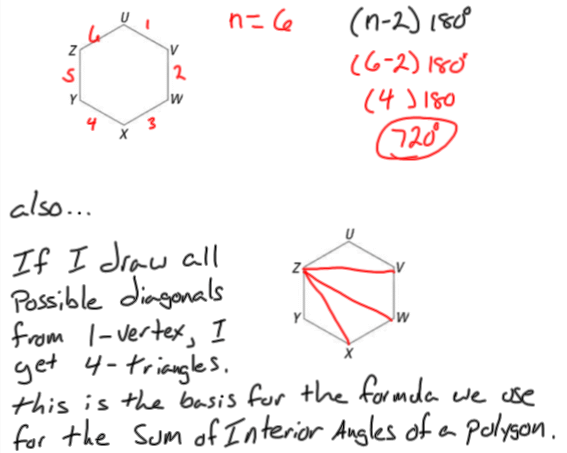 U
6 1
n=6
(n-2) 180°
Z V
(6-2) 180°
5 2
Y W
(4) 180
4 3
X
720°
also...
If I draw all
Possible diagonals
from 1-vertex, I
get 4-triangles.
U
Z V
Y W
X
this is the basis for the formula we use
for the Sum of Interior Angles of a polygon.